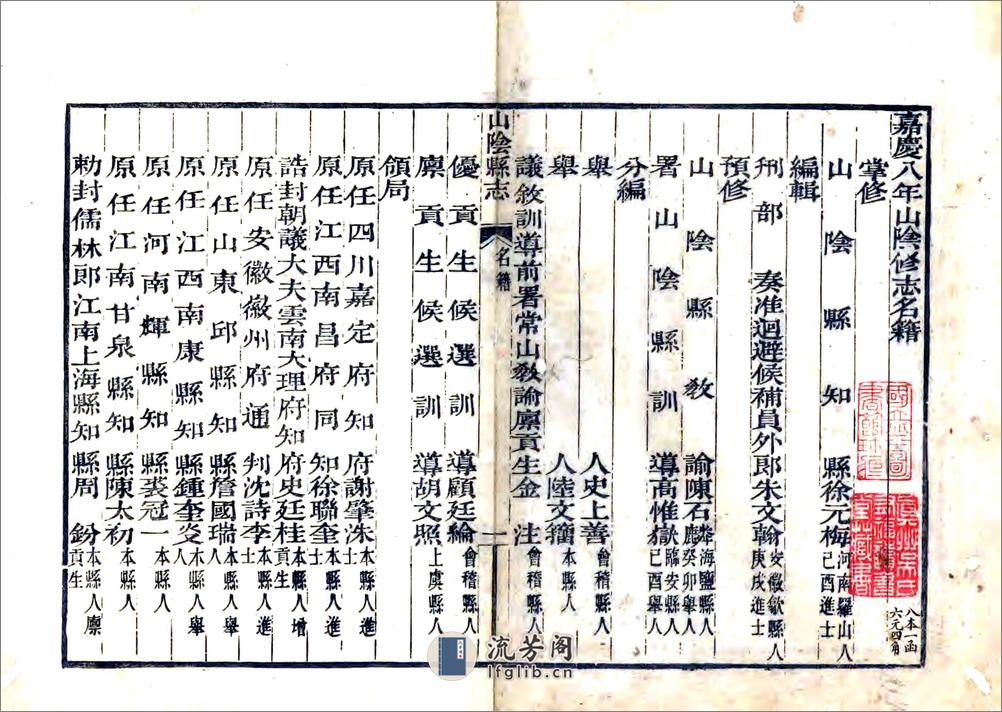 嘉慶八年山陰修志名籍
掌修
山陰縣知縣徐元梅河南羅山人己酉進士
編輯
刑部奏准迴避候補員外郎朱文翰安徽歙縣人庚戌進士
預修
山陰縣教諭陳石麟海鹽縣人癸卯舉人
署山陰縣訓導高惟嶽臨安縣人己酉舉人
分編
舉人史上善
舉人陸文籀本縣人
議敘訓導前署常山教諭廩貢生金注會稽縣人
山陰縣志
名籍
一
優貢生候選訓導顧廷綸會稽縣人
廩貢生候選訓導胡文照上虞縣人
領局
原任四川嘉定府知府謝肇洙本縣人進士
原任江西南昌府同知徐聯奎本縣人進士
誥封朝議大夫雲南大理府知府史廷桂本縣人增貢生
原任安徽徽州府通判沈詩李本縣人進士
原任山東邱縣知縣詹國瑞本縣人舉人
原任江西南康縣知縣鍾奎炎本縣人舉人
原任河南輝縣知縣裘冠一本縣人
原任江南甘泉縣知縣陳太初本縣人
勅封儒林郎江南上海縣知縣周鈖本縣人廩貢生
八本一函
六元四角
流芳阁
lfglib.cn